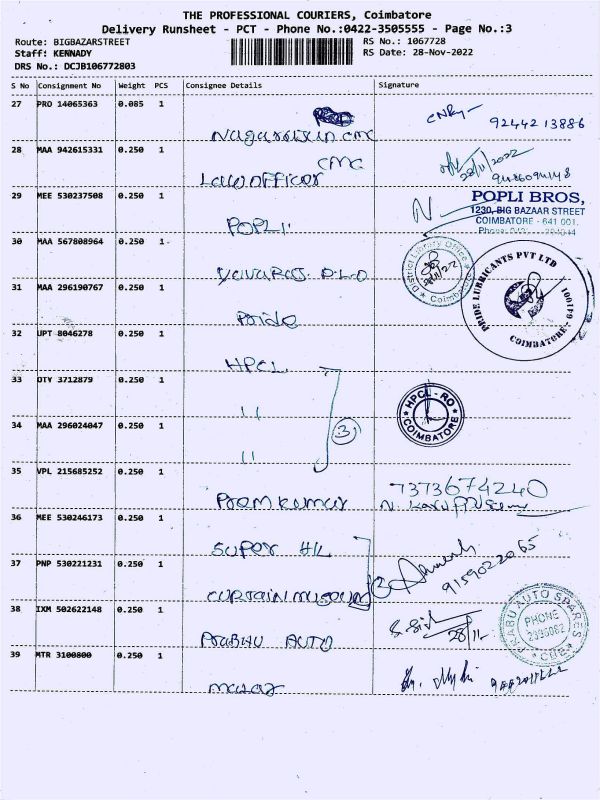 THE PROFESSIONAL COURIERS, Coimbatore
Delivery Runsheet - PCT - Phone No.:0422-3505555 - Page No.:3
Route: BIGBAZARSTREET
Staff: KENNADY
DRS No.: DCJB106772803
RS No.: 1067728
RS Date: 28-Nov-2022
S No Consignment No Weight PCS Consignee Details Signature
27 PRO 14065363 0.085 1
CMC 9244213886
28 MAA 942615331 0.250 1
Law officer CMC 28/11/2022
29 MEE 530237508 0.250 1
POPLI
POPLI BROS,
1230, BIG BAZAAR STREET
COIMBATORE - 641 001.
30 MAA 567808964 0.250 1-
D.L.O
District Library Office Coimbatore
31 MAA 296190767 0.250 1
Pride
PRIDE LUBRICANTS PVT LTD
COIMBATORE-641001
32 UPT 8046278 0.250 1
HPCL
33 OTY 3712879 0.250 1
11
HPCL - RO
COIMBATORE
34 MAA 296024047 0.250 1
11
3
35 VPL 215685252 0.250 1
Prem kumar 7373674240
36 MEE 530246173 0.250 1
Super
37 PNP 530221231 0.250 1
Curtain museum 2 9159022065
38 IXM 502622148 0.250 1
Prabhu Auto 28/11-
PRABU AUTO SPARES
PHONE
CBE
39 MTR 3100800 0.250 1